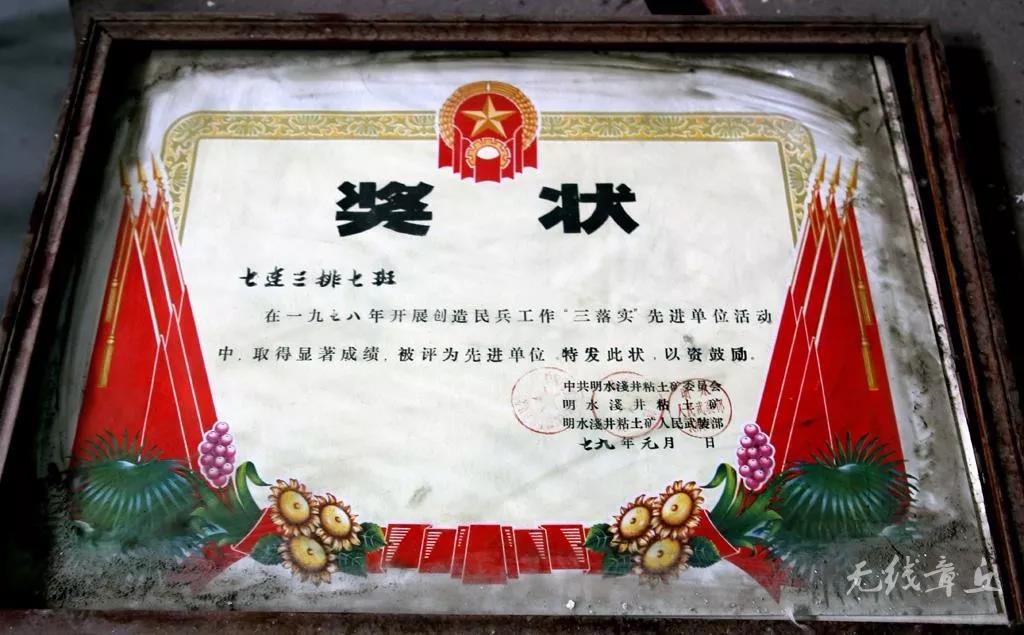 奖状
七连三排七班
在一九七八年开展创造民兵工作“三落实”先进单位活动
中，取得显著成绩，被评为先进单位。特发此状，以资鼓励。
中共明水淺井粘土矿委员会
明水淺井粘土矿
明水淺井粘土矿人民武装部
七九年元月 日
无线章丘